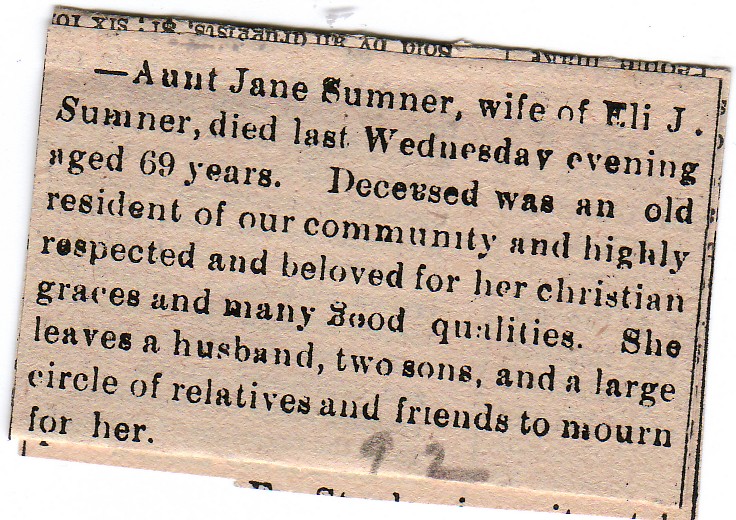 —Aunt Jane Sumner, wife of Eli J.
Sumner, died last Wednesday evening
aged 69 years. Deceased was an old
resident of our community and highly
respected and beloved for her christian
graces and many good qualities. She
leaves a husband, two sons, and a large
circle of relatives and friends to mourn
for her.
92